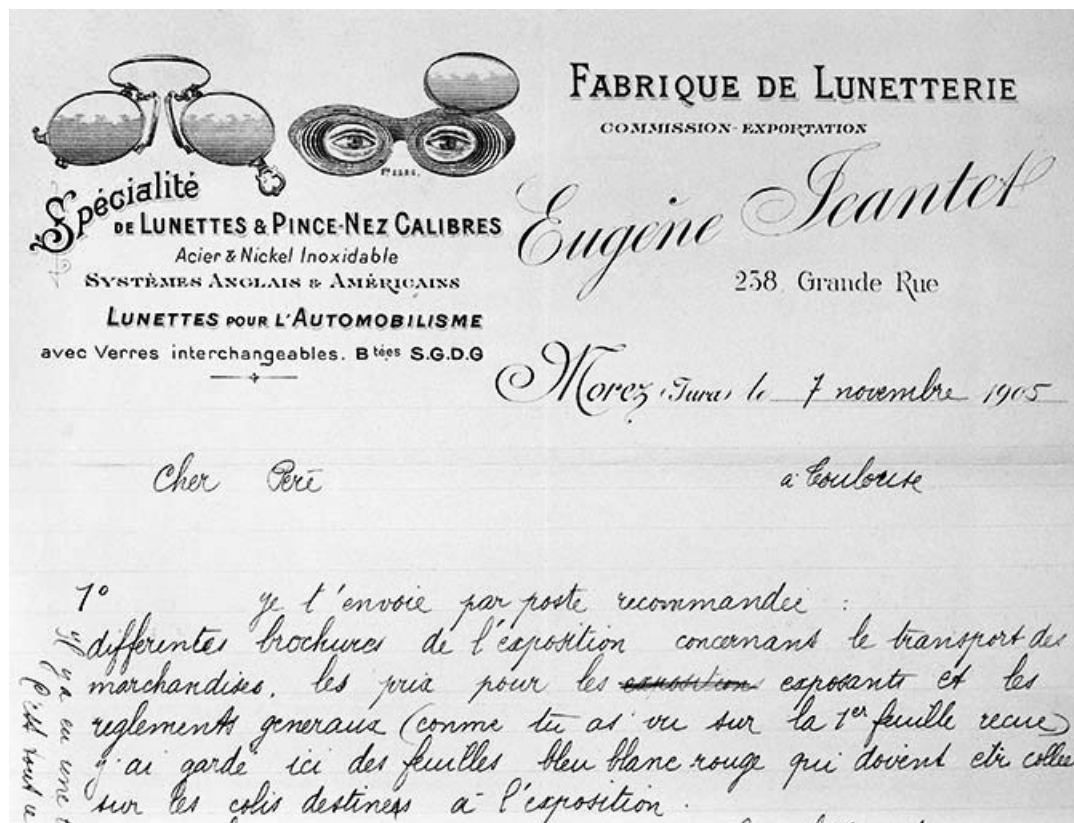 FABRIQUE DE LUNETTERIE
COMMISSION-EXPORTATION
Spécialité
DE LUNETTES & PINCE-NEZ CALIBRES
Acier & Nickel Inoxidable
SYSTÈMES ANGLAIS & AMÉRICAINS
LUNETTES POUR L'AUTOMOBILISME
avec Verres interchangeables. Btées S.G.D.G
Eugène Jeantet
238, Grande Rue
Morez (Jura) le 7 novembre 1905
Cher Peré
à Toulouse
1°
je t'envoie par poste recommandée :
differentes brochures de l'exposition concernant le transport des
marchandises, les prix pour les expositions exposants et les
reglements generaux (comme tu as vu sur la 1er feuille recue)
j'ai garde ici des feuilles bleu blanc rouge qui doivent etr collee
sur les colis destines a l'exposition.
y ya eu une
C'est tout ce